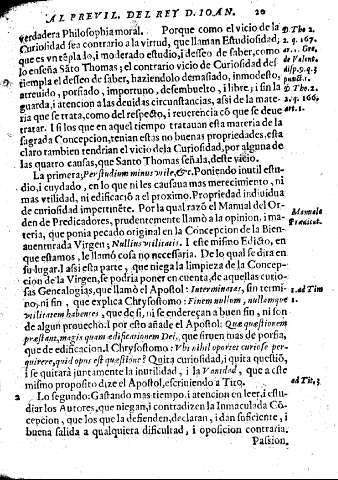 AL PREVIL. DEL REY D. IOAN. 20
verdadera Philosophia moral. Porque como el vicio de la
Curiosidad sea contrario a la virtud, que llaman Estudiosidad;
que es vn tẽpla lo, i moderado estudio, i desseo de saber, como
lo enseña Sãto Thomas; el contrario vicio de Curiosidad des
tiempla el desseo de saber, haziendolo demasiado, inmodesto,
atreuido, porfiado, importuno, desembuelto, i libre; i sin la
guarda, i atencion a las deuidas circunstancias, assi de la mate-
ria que se trata, como del respecto, i reuerencia cõ que se deue
tratar. I si los que en aquel tiempo tratauan esta materia de la
sagrada Concepcion, tenian estas no buenas propriedades, esta
claro tambien tendrian el vicio de la Curiosidad, por alguna de
las quatro causas, que Santo Thomas señala, deste vicio.
La primera; Per studium minus vtile, &c. Poniendo inutil estu-
dio, i cuydado, en lo que ni les causaua mas merecimiento, ni
mas vtilidad, ni edificaciõ a el proximo. Propriedad indiuidua
de curiosidad impertinẽte. Por la qual razõ el Manual del Or-
den de Predicadores, prudentemente llamò a la opinion, i ma-
teria, que ponia pecado original en la Concepcion de la Bien-
auenturada Virgen; Nullius vtilitatis. I este mismo Edicto, en
que estamos, le llamò cosa no necessaria. De lo qual se dirà en
su lugar. I assi esta parte, que niega la limpieza de la Concep-
cion de la Virgen, se podria poner en cuenta, de aquellas curio-
sas Genealogias, que llamò el Apostol: Interminatas, sin termi-
no, ni fin, que explica Chrysostomo: Finem nullum, nullamque
vtilitatem habentes, que de si, ni se endereçan a buen fin, ni son
de algun prouecho. I por esto añade el Apostol: Quæ quæstionem
præstant, magis quam ædificationem Dei, que siruen mas de porfia,
que de edificacion. I Chrysostomo: Vbi nihil oportet curiose per-
quirere, quid opus est quæstione? Quita curiosidad, i quita questiõ,
i se quitarà juntamente la inutilidad, i la Vanidad, que a este
mismo proposito dize el Apostol, escriuiendo a Tito.
2 Lo segundo: Gastando mas tiempo, i atencion en leer, i estu-
diar los Autores, que niegan, i contradizen la Inmaculada Cõ-
cepcion, que los que la defienden, declaran, i dan suficiente, i
buena salida a qualquiera dificultad, i oposicion contraria.
Passion,
D. Tho 2.
2. q. 167.
ar. 1.
de Valent.
disp. 9. q. 3
punct. 1.
D. Tho.
2. q. 166,
art. 1.
Manuale
Prædicat.
1. ad Tim
1.
ad Tit. 3